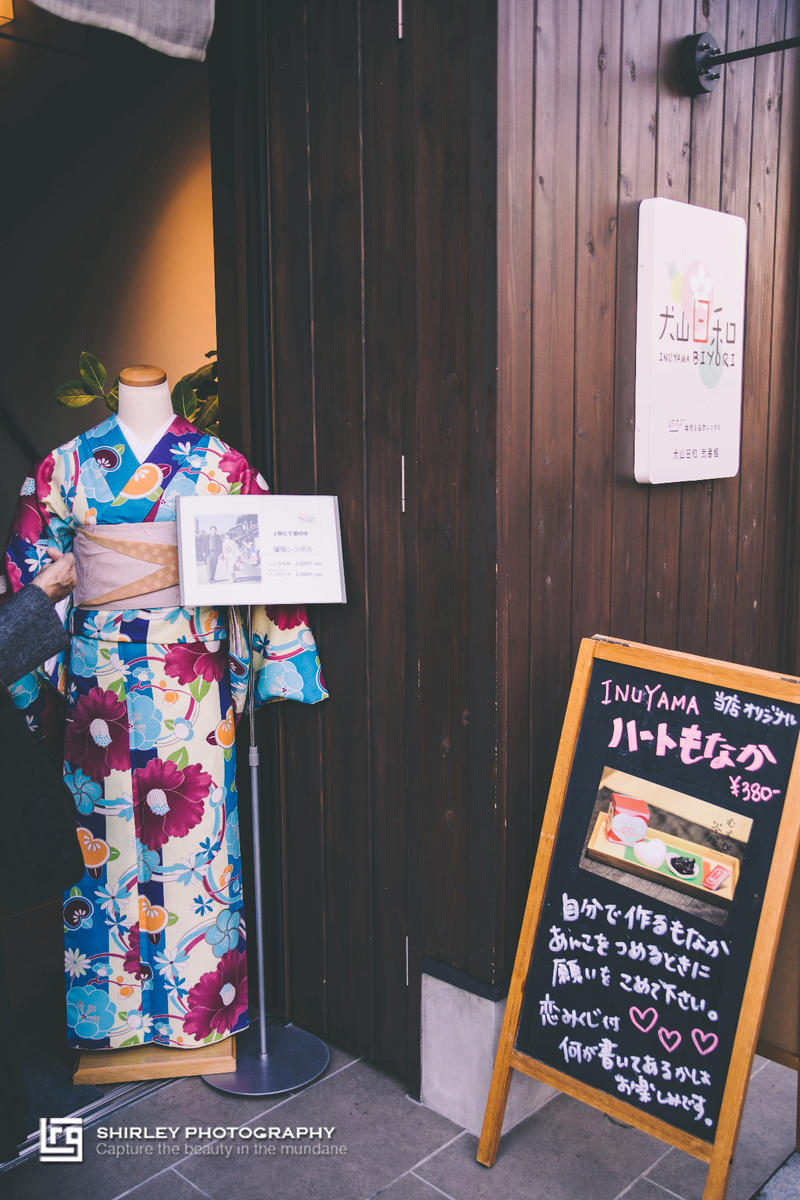 犬山日和
INUYAMA BIYORI
着物&浴衣レンタル
犬山日和 弐番館
2階にて受付中
着物レンタル
INUYAMA 当店オリジナル
ハートもなか
¥380-
自分で作るもなか
あんこをつめるときに
願いをこめて下さい。
恋みくじ付♡♡♡
何が書いてあるかは
お楽しみです。
SHIRLEY PHOTOGRAPHY
Capture the beauty in the mundane